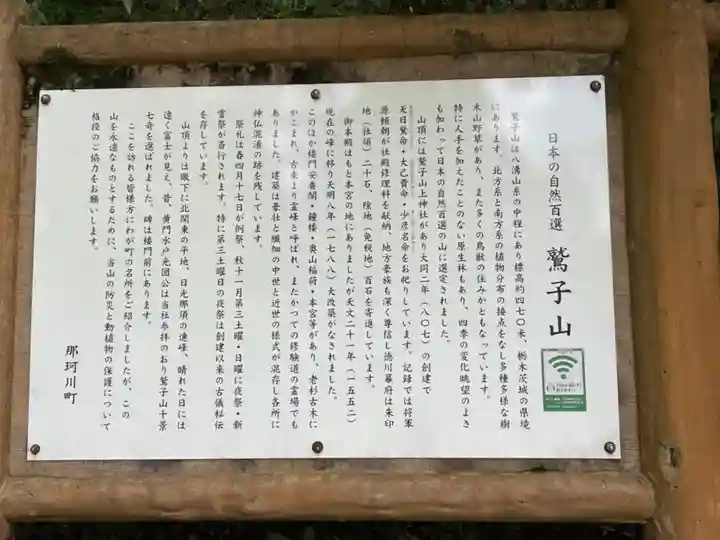 日本の自然百選 鷲子山
鷲子山は八溝山系の中程にあり標高約四七〇米、栃木茨城の県境
にあります。北方系と南方系の植物分布の接点をなし多種多様な樹
木山野草があり、また多くの鳥獣の住みかともなっています。
特に人手を加えたことのない原生林もあり、四季の変化眺望のよさ
も加わって日本の自然百選の山に選定されました。
山頂には鷲子山上神社があり大同二年（八〇七）の創建で
天日鷲命・大己貴命・少彦名命をお祀りしています。記録では将軍
源頼朝が社殿修理料を献納、地方豪族も深く尊信し徳川幕府は朱印
地（社領）二十石、除地（免税地）百石を寄進しています。
御本殿はもと本宮の地にありましたが天文二十一年（一五五二）
現在の峰に移り天明八年（一七八八）大改築がなされました。
このほか楼門安養閣・鐘楼・奥山稲荷・本宮等があり、老杉古木に
かこまれ、古来より霊峰と呼ばれ、またかつての修験道の霊場でも
ありました。建築は豪壮と繊細の中世と近世の様式が混存し各所に
神仏混淆の跡を残しています。
祭礼は春四月十七日が例祭、秋十一月第三土曜・日曜に夜祭・新
霊祭が斎行されます。特に第三土曜日の夜祭は創建以来の古儀秘伝
を存しています。
山頂よりは眼下に北関東の平地、日光那須の連峰、晴れた日には
遠く富士が見え、昔、黄門水戸光圀公は当社参拝のおり鷲子山十景
七奇を選ばれました。碑は楼門前にあります。
ここを訪れる皆様方にわが町の名所をご紹介しましたが、この
山を永遠なものとするために、当山の防災と動植物の保護について
格段のご協力をお願いします。
那珂川町